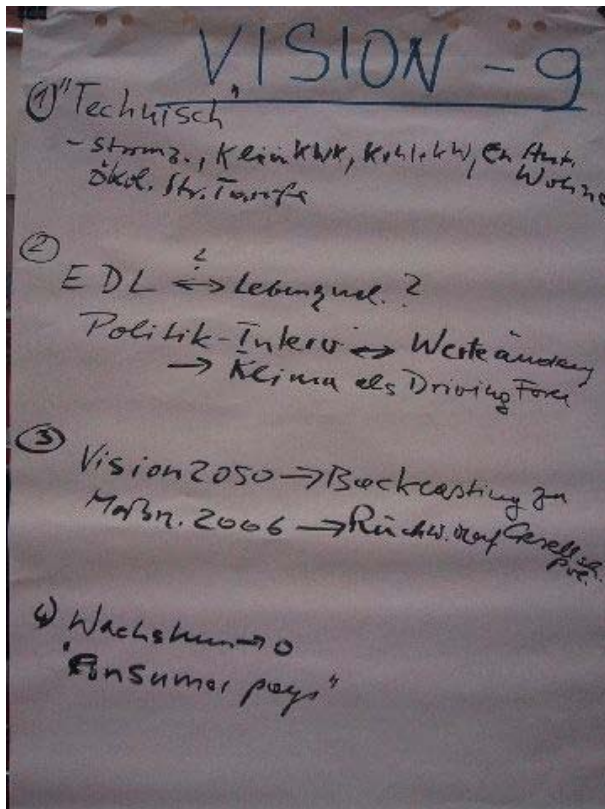 VISION - 9
① "Technisch"
- Stromz., Klein KWK, Kohlekw, En
Wohne
Ökol. Str. Tarife
②
?
EDL ↔ Lebensqual. ?
Politik-Interv ↔ Werteänderung
→ Klima als Driving Force
③ Vision 2050 → Backcasting zu
Maßn. 2006 → Rückw. auf Gesellsch.
Pol.
4) Wachstum → 0
"Consumer pays"